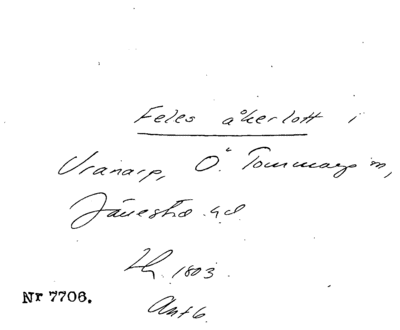 Feles åkerlott i
Vranarp, Ö. Tommarp sn,
Järrestad hd
Lh. 1803.
Nr 7706.
Ant 6.